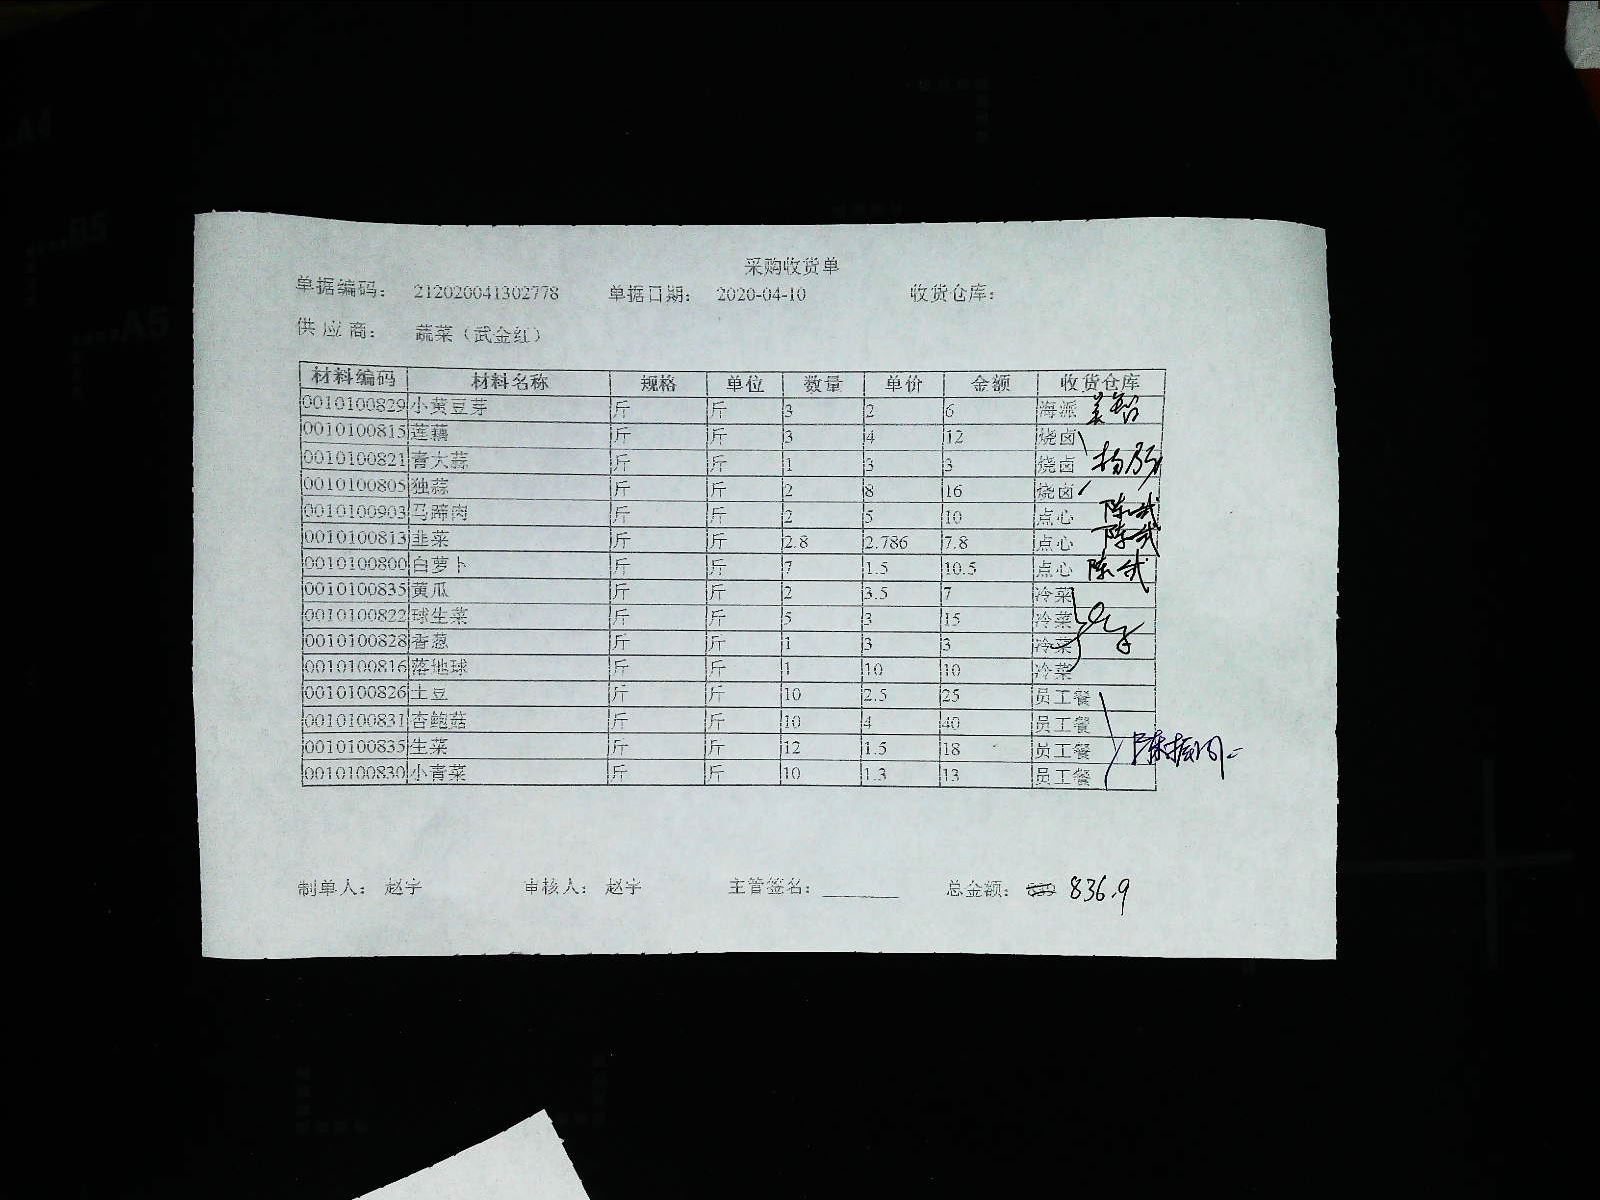 采购收货单
单据编码： 212020041302778 单据日期： 2020-04-10 收货仓库：
供应商： 蔬菜（武金红）
材料编码 材料名称 规格 单位 数量 单价 金额 收货仓库
0010100829 小黄豆芽 斤 斤 3 2 6 海派
0010100815 莲藕 斤 斤 3 4 12 烧卤
0010100821 青大蒜 斤 斤 1 3 3 烧卤
0010100805 独蒜 斤 斤 2 8 16 烧卤
0010100903 马蹄肉 斤 斤 2 5 10 点心
0010100813 韭菜 斤 斤 2.8 2.786 7.8 点心
0010100800 白萝卜 斤 斤 7 1.5 10.5 点心
0010100835 黄瓜 斤 斤 2 3.5 7 冷菜
0010100822 球生菜 斤 斤 5 3 15 冷菜
0010100828 香葱 斤 斤 1 3 3 冷菜
0010100816 落地球 斤 斤 1 10 10 冷菜
0010100826 土豆 斤 斤 10 2.5 25 员工餐
0010100831 杏鲍菇 斤 斤 10 4 40 员工餐
0010100835 生菜 斤 斤 12 1.5 18 员工餐
0010100830 小青菜 斤 斤 10 1.3 13 员工餐
制单人： 赵宇 审核人： 赵宇 主管签名： 总金额： 836.9
A4
B5
A5